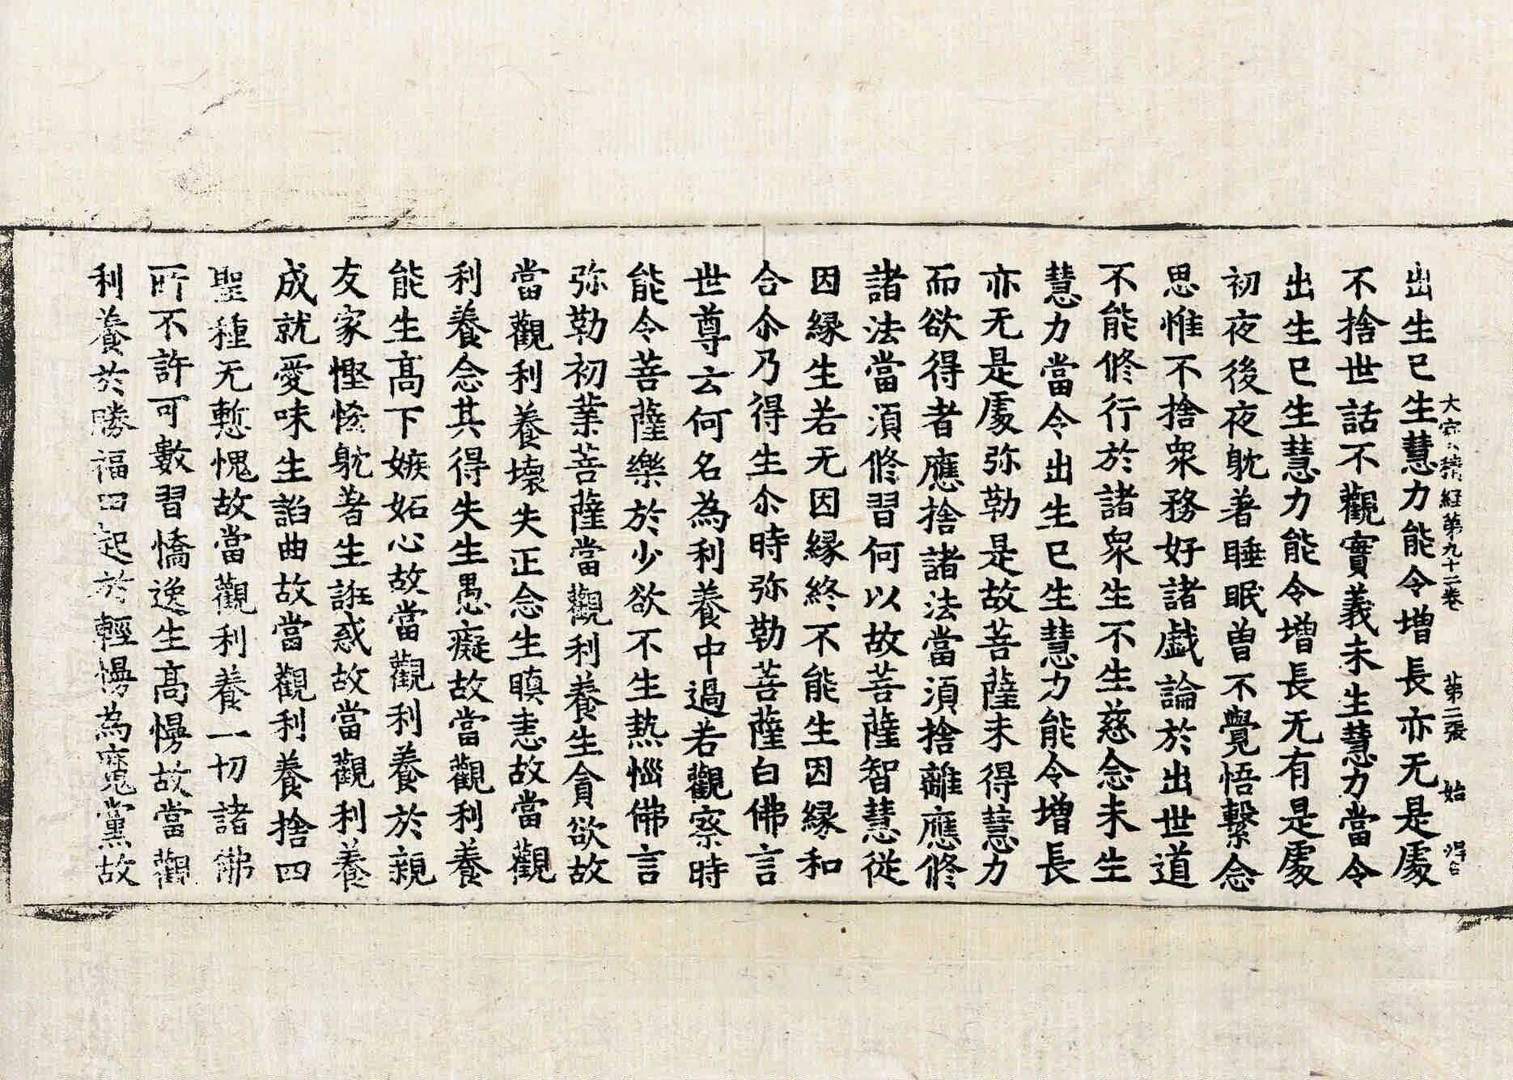 大宝積経第九十二卷 第二張 始
出生已生慧力能令增長亦无是處
不捨世話不觀實義未生慧力當令
出生已生慧力能令增長无有是處
初夜後夜躭著睡眠曾不覺悟繫念
思惟不捨衆務好諸戯論於出世道
不能修行於諸衆生不生慈念未生
慧力當令出生已生慧力能令增長
亦无是處弥勒是故菩薩未得慧力
而欲得者應捨諸法當須捨離應修
諸法當須修習何以故菩薩智慧従
因緣生若无因緣終不能生因緣和
合尒乃得生尒時弥勒菩薩白佛言
世尊云何名為利養中過若觀察時
能令菩薩樂於少欲不生热惱佛言
弥勒初業菩薩當觀利養生貪欲故
當觀利養壞失正念生瞋恚故當觀
利養念其得失生愚癡故當觀利養
能生髙下嫉妬心故當觀利養於親
友家慳悋躭著生誑惑故當觀利養
成就愛味生諂曲故當觀利養捨四
聖種无慙愧故當觀利養一切諸佛
所不許可數習憍逸生髙慢故當觀
利養於勝福田起於輕慢為魔黨故